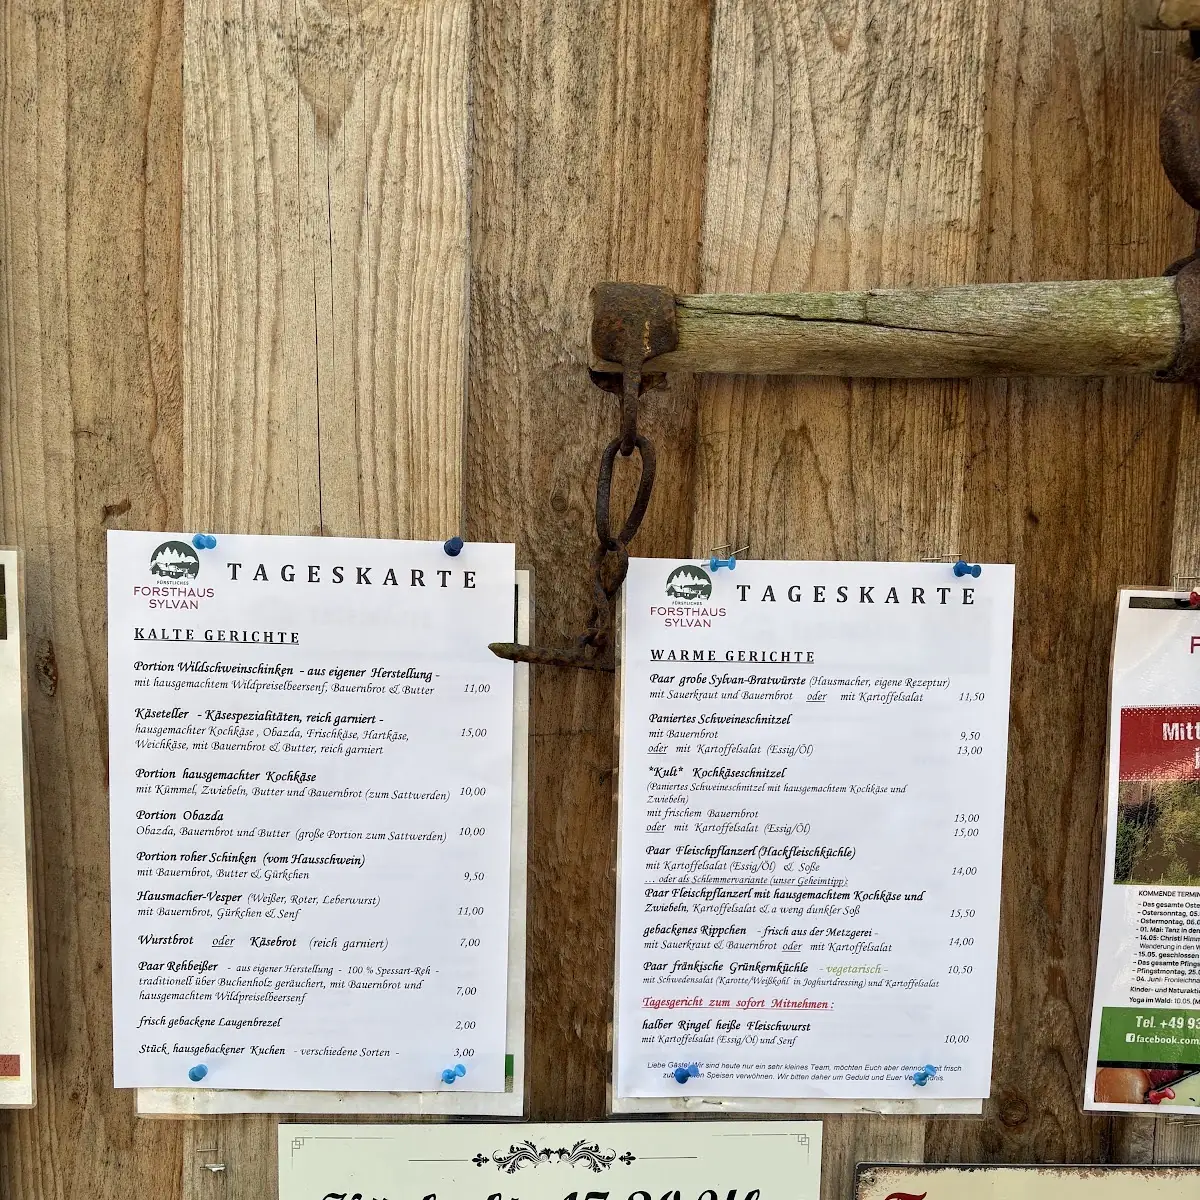 FÜRSTLICHES
FORSTHAUS
SYLVAN
TAGESKARTE
KALTE GERICHTE
Portion Wildschweinschinken - aus eigener Herstellung -
mit hausgemachtem Wildpreiselbeersenf, Bauernbrot & Butter 11,00
Käseteller - Käsespezialitäten, reich garniert -
hausgemachter Kochkäse , Obazda, Frischkäse, Hartkäse, 15,00
Weichkäse, mit Bauernbrot & Butter, reich garniert
Portion hausgemachter Kochkäse
mit Kümmel, Zwiebeln, Butter und Bauernbrot (zum Sattwerden) 10,00
Portion Obazda
Obazda, Bauernbrot und Butter (große Portion zum Sattwerden) 10,00
Portion roher Schinken (vom Hausschwein)
mit Bauernbrot, Butter & Gürkchen 9,50
Hausmacher-Vesper (Weißer, Roter, Leberwurst)
mit Bauernbrot, Gürkchen & Senf 11,00
Wurstbrot oder Käsebrot (reich garniert) 7,00
Paar Rehbeißer - aus eigener Herstellung - 100 % Spessart-Reh -
traditionell über Buchenholz geräuchert, mit Bauernbrot und
hausgemachtem Wildpreiselbeersenf 7,00
frisch gebackene Laugenbrezel 2,00
Stück hausgebackener Kuchen - verschiedene Sorten - 3,00
FÜRSTLICHES
FORSTHAUS
SYLVAN
TAGESKARTE
WARME GERICHTE
Paar grobe Sylvan-Bratwürste (Hausmacher, eigene Rezeptur)
mit Sauerkraut und Bauernbrot oder mit Kartoffelsalat 11,50
Paniertes Schweineschnitzel
mit Bauernbrot 9,50
oder mit Kartoffelsalat (Essig/Öl) 13,00
*Kult* Kochkäseschnitzel
(Paniertes Schweineschnitzel mit hausgemachtem Kochkäse und
Zwiebeln)
mit frischem Bauernbrot 13,00
oder mit Kartoffelsalat (Essig/Öl) 15,00
Paar Fleischpflanzerl (Hackfleischküchle)
mit Kartoffelsalat (Essig/Öl) & Soße 14,00
... oder als Schlemmervariante (unser Geheimtipp):
Paar Fleischpflanzerl mit hausgemachtem Kochkäse und
Zwiebeln, Kartoffelsalat & a weng dunkler Soß 15,50
gebackenes Rippchen - frisch aus der Metzgerei -
mit Sauerkraut & Bauernbrot oder mit Kartoffelsalat 14,00
Paar fränkische Grünkernküchle - vegetarisch - 10,50
mit Schwedensalat (Karotte/Weißkohl in Joghurtdressing) und Kartoffelsalat
Tagesgericht zum sofort Mitnehmen:
halber Ringel heiße Fleischwurst
mit Kartoffelsalat (Essig/Öl) und Senf 10,00
Liebe Gäste! Wir sind heute nur ein sehr kleines Team, möchten Euch aber dennoch mit frisch
Speisen verwöhnen. Wir bitten daher um Geduld und Euer
F
Mitt
KOMMENDE TERMIN
- Das gesamte Oste
- Ostersonntag, 05.
- Ostermontag, 06.
- 01. Mai: Tanz in den
- 14.05: Christi Himm
Wanderung in den W
- 15.05. geschlossen
- Das gesamte Pfings
- Pfingstmontag, 25.
- 04. Juni: Fronleichna
Kinder- und Naturakti
Yoga im Wald: 10.05.
Tel. +49 93
facebook.com